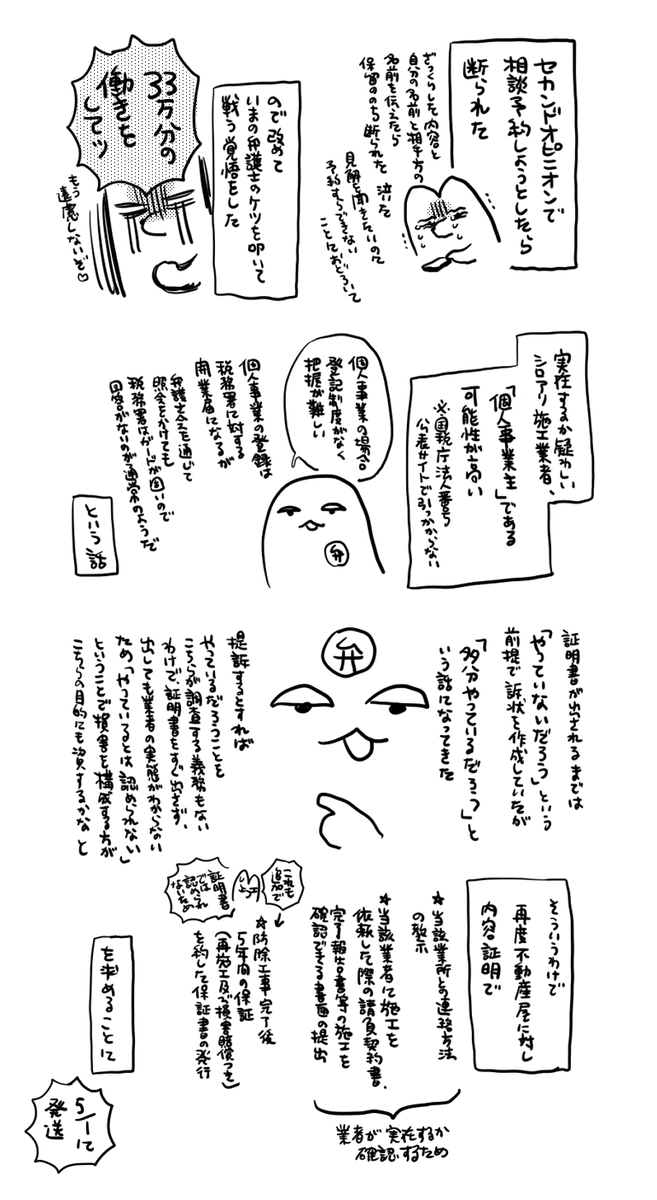 セカンドオピニオンで
相談予約しようとしたら
断られた
ざっくりした内容と
自分の名前と相手方の
名前を伝えたら
保留ののち断られた 泣いた
見解を聞きたいのに
予約すらできない
ことにおどろいて
ので改めて
いまの弁護士のケツを叩いて
戦う覚悟をした
33万分の
働きを
してッ
もう
遠慮しないぞ♡
実在するか疑わしい
シロアリ施工業者、
「個人事業主」である
可能性が高い
※国税庁法人番号
公表サイトで引っかからない
個人事業の場合
登記制度がなく
把握が難しい
弁
個人事業の登録は
税務署に対する
開業届になるが
弁護士会を通じて
照会をかけても
税務署はガードが固いので
回答がないのが通常のようだ
という話
証明書が出されるまでは
「やっていないだろう」という
前提で訴状を作成していたが
「多分やっているだろう」と
いう話になってきた
弁
提訴するとすれば
やっているだろうことを
こちらが調査する義務もない
わけで、証明書をすぐ出さず、
出しても業者の実態がわからない
ため「やっているとは認められない」
ということで損害を構成する方が
こちらの目的にも資するかな と
そういうわけで
再度不動産屋に対し
内容証明で
☆当該業所との連絡方法
の教示
☆当該業者に施工を
依頼した際の請負契約書、
完了報告書等の施工を
確認できる書面の提出
業者が実在するか
確認するため
これも
追加で
証明書
では
認められ
ないため
☆防除工事完了後
5年間の保証
(再施工及び損害賠償つき)
を約した保証書の発行
を求めることに
5/1に
発送